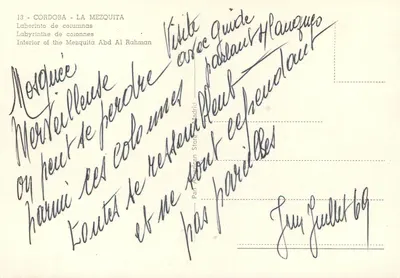 13 - CORDOBA - LA MEZQUITA
Laberinto de columnas
Labyrinthe de colonnes
Interior of the Mezquita Abd Al Rahman
Mosquée
Merveilleuse
où on peut se perdre
parmi ces colonnes
toutes se ressemblent
et ne sont cependant
pas pareilles
Visite
avec guide
parlant
Juillet 69